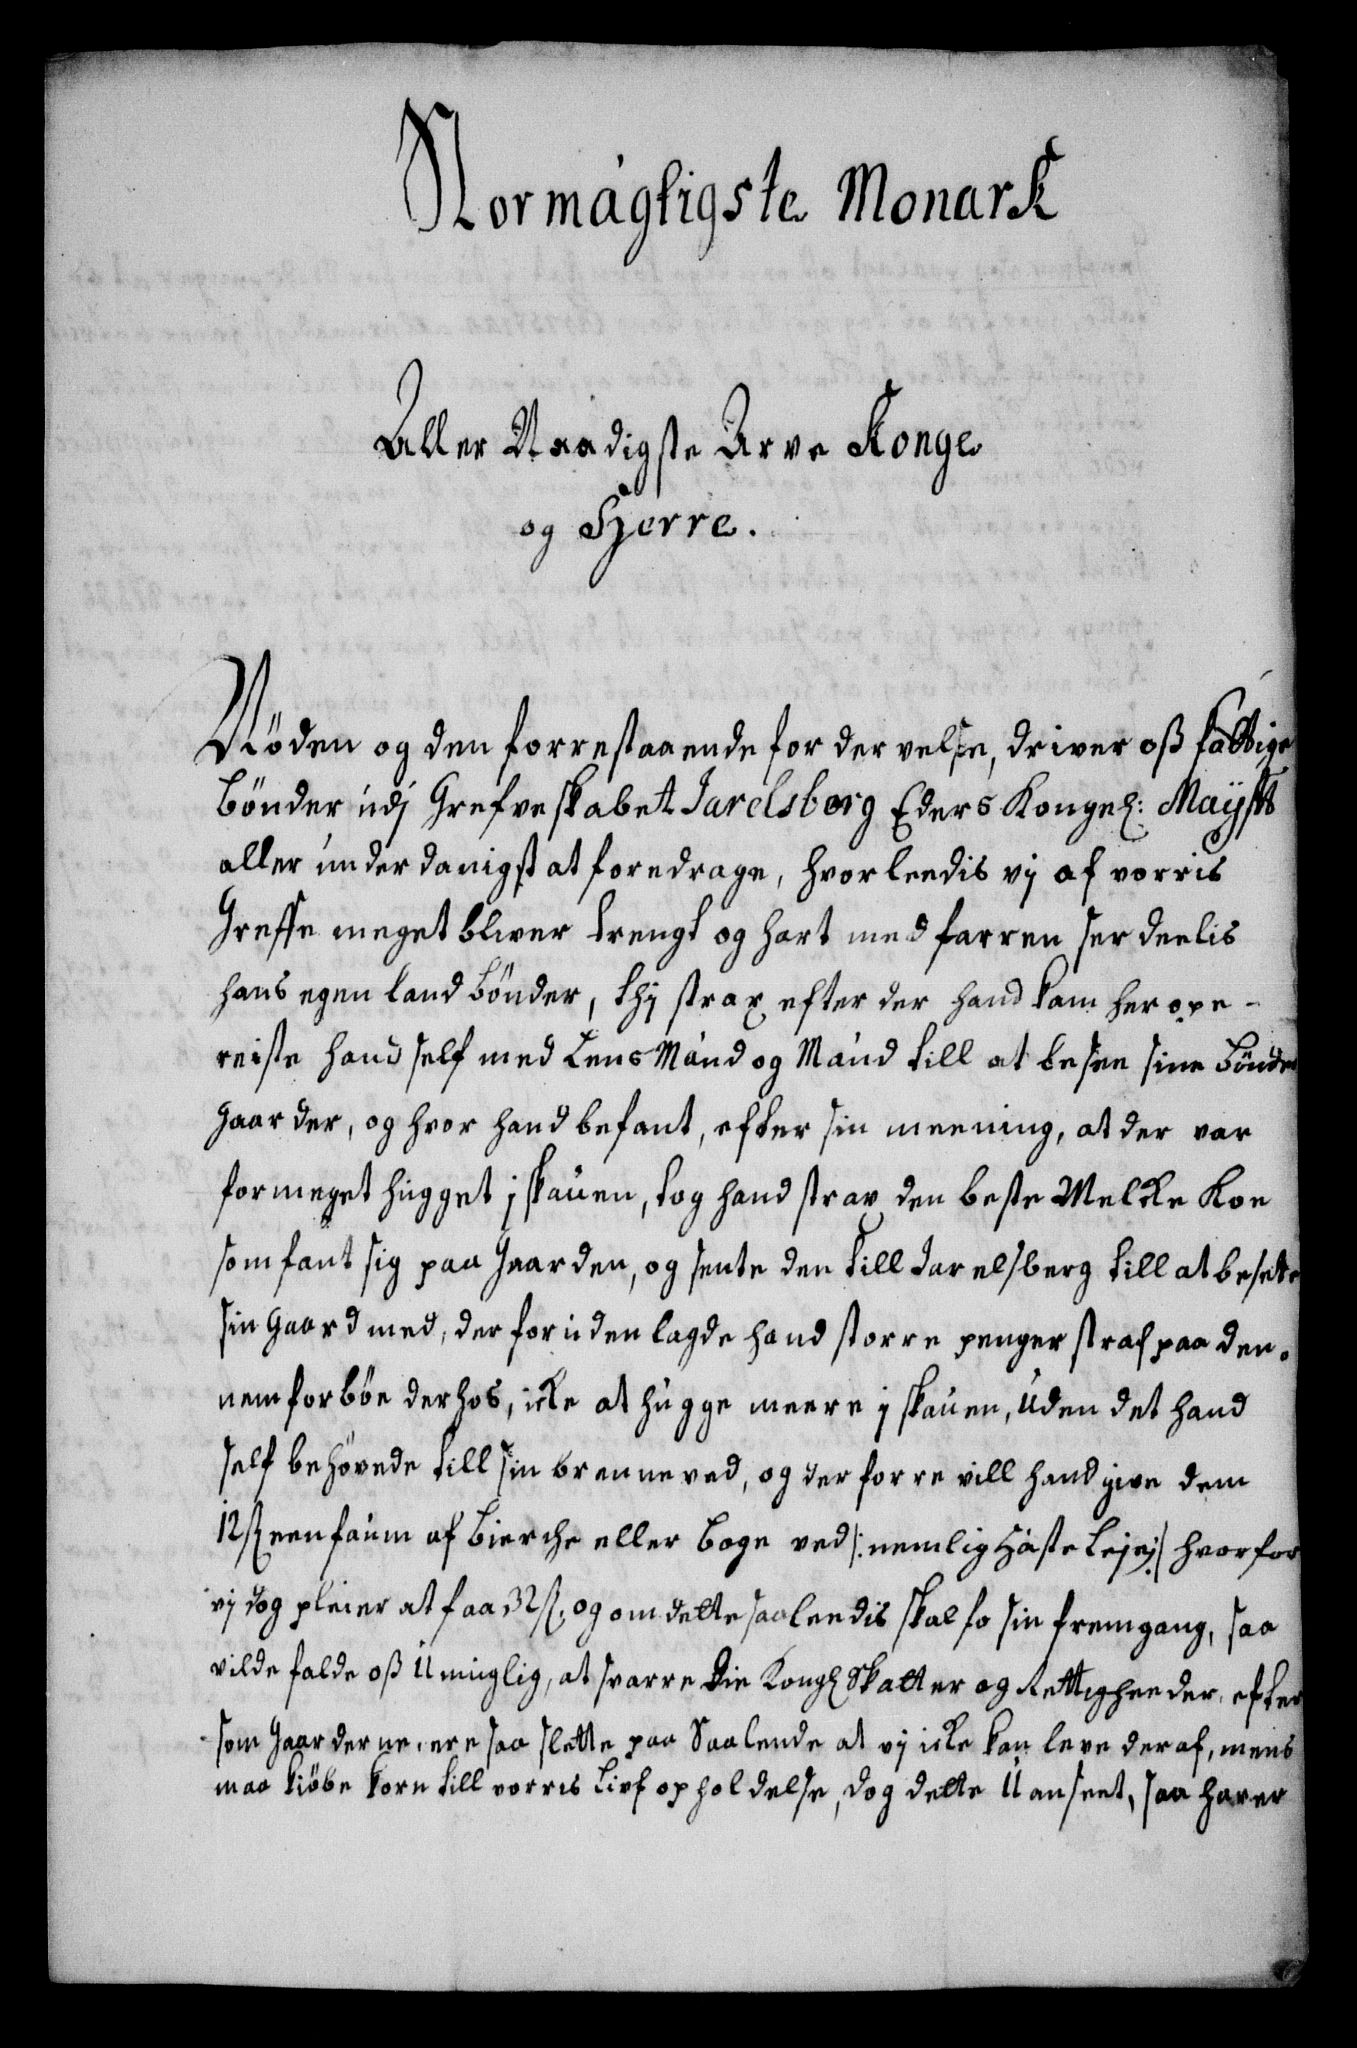 Stormägtigste Monark
Aller Naadigste Arve Konge
og Herre.
Nöden og den forrestaaende fordervelse, driver oß fattige
bönder udj Grefveskabet Jarelsberg Eders Kongel: Mayßts
aller underdanigst at foredrage, hvorleedis vj af vorris
Greffe meget bliver trengt og hart medfarren serdeelis
hans egen land bönder, thj strax efter der hand kam her ope-
reiste hand self med Lens Mand og Mand till at besee sine bönder
gaarder, og hvor hand befant, efter sin meening, at der var
formeget hugget j skauen, tog hand strax den beste Melcke Koe
som fant sig paa gaarden, og sente den till Jarelsberg till at besette
sin gaard med, der foruden lagde hand storre penger straf paa den.
nem forböe derhos, icke at hugge meere j skauen, uden det hand
self behövede till sin brenneved, og derforre vill hand give dem
12 ß een faum af bierche eller boge ved /: nemlig Haste Leje :/ hvorfor
vj dog pleier at faa 32 ß, og om dette saaleedis skal fo sin fremgang, saa
vilde falde oß Umuglig, at svarre Die Kongl Skatter og Rettigheeder, efter
som gaarderne, ere saa slette paa Saalende at vj icke kan leve deraf, mens
maa kiöbe korn till vorris Lifs opholdelse, dog dette Uanseet, saa harer